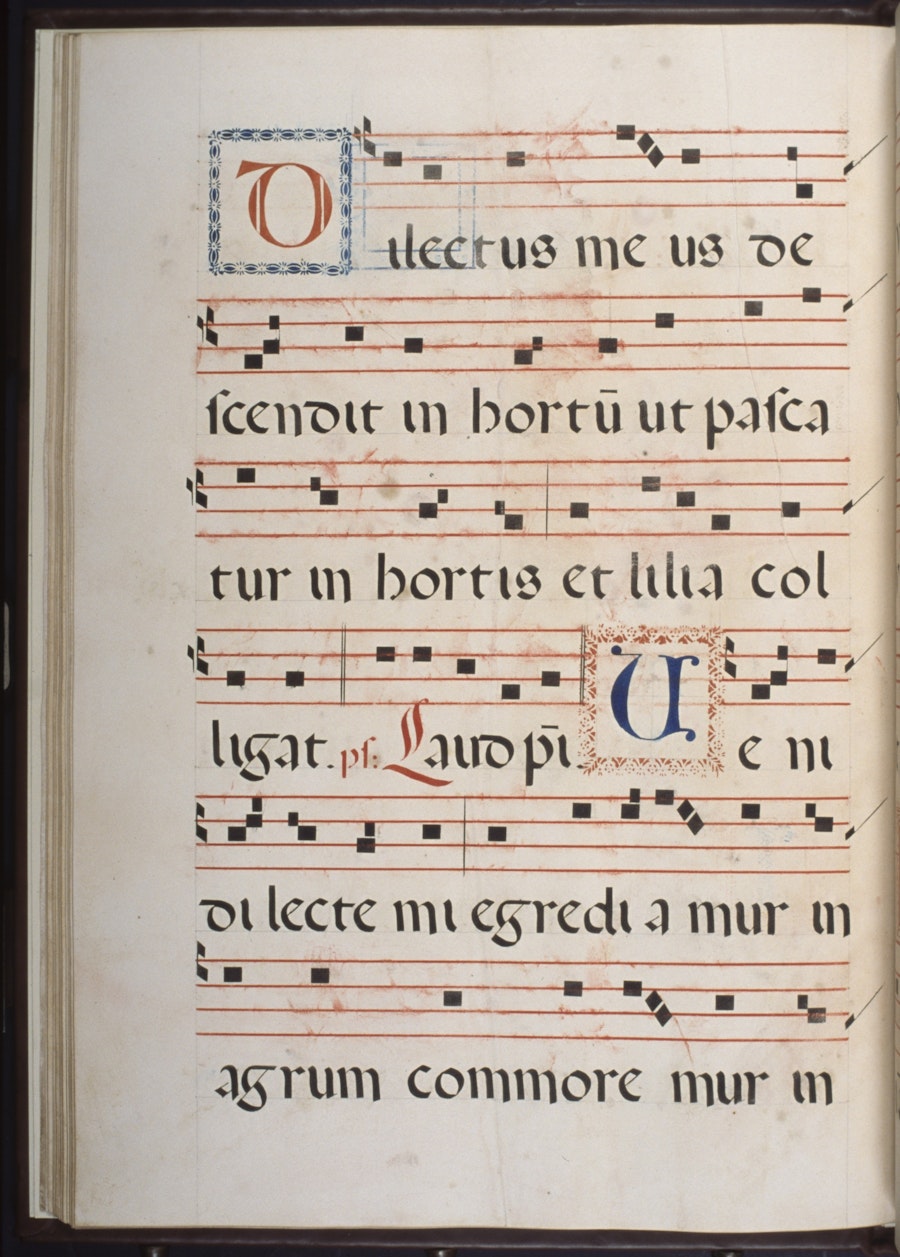 Dilectus meus de
scendit in hortū ut pasca
tur in hortis et lilia col
ligat. ps. Laud pī. Veni
dilecte mi egrediamur in
agrum commoremur in